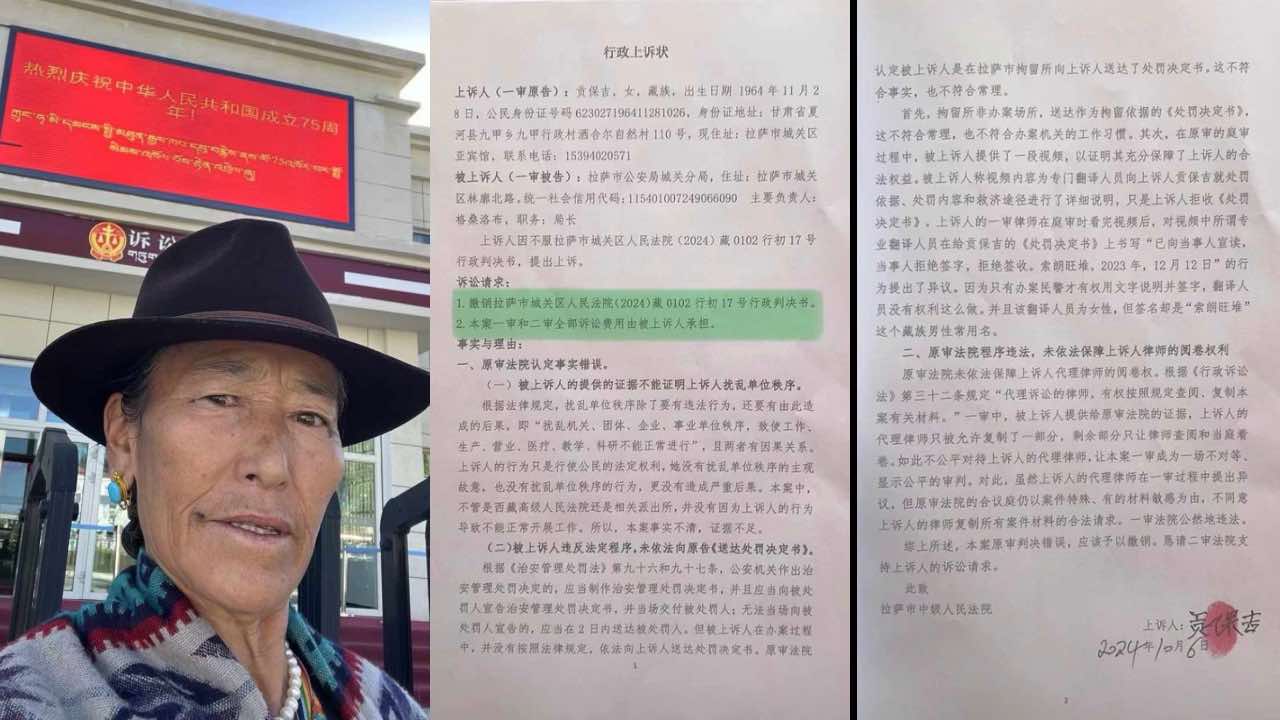 热烈庆祝中华人民共和国成立75周
年!
诉讼
行政上诉状
上诉人（一审原告）：贡保吉，女，藏族，出生日期 1964 年 11 月 2
8 日，公民身份证号码 623027196411281026，身份证地址：甘肃省夏
河县九甲乡九甲行政村洒合尔自然村 110 号，现住址：拉萨市城关区
亚宾馆，联系电话：15394020571
被上诉人（一审被告）：拉萨市公安局城关分局，住址：拉萨市城关
区林廓北路，统一社会信用代码：115401007249066090 主要负责人：
格桑洛布，职务：局长
上诉人因不服拉萨市城关区人民法院（2024）藏 0102 行初 17 号
行政判决书，提出上诉。
诉讼请求：
1. 撤销拉萨市城关区人民法院（2024）藏 0102 行初 17 号行政判决书。
2. 本案一审和二审全部诉讼费用由被上诉人承担。
事实与理由：
一、原审法院认定事实错误。
（一）被上诉人的提供的证据不能证明上诉人扰乱单位秩序。
根据法律规定，扰乱单位秩序除了要有违法行为，还要有由此造
成的后果，即“扰乱机关、团体、企业、事业单位秩序，致使工作、
生产、营业、医疗、教学、科研不能正常进行”，且两者有因果关系。
上诉人的行为只是行使公民的法定权利，她没有扰乱单位秩序的主观
故意，也没有扰乱单位秩序的行为，更没有造成严重后果。本案中，
不管是西藏高级人民法院还是相关派出所，并没有因为上诉人的行为
导致不能正常开展工作。所以，本案事实不清，证据不足。
（二）被上诉人违反法定程序，未依法向原告《送达处罚决定书》。
根据《治安管理处罚法》第九十六和九十七条，公安机关作出治
安管理处罚决定的，应当制作治安管理处罚决定书，并且应当向被处
罚人宣告治安管理处罚决定书，并当场交付被处罚人；无法当场向被
处罚人宣告的，应当在 2 日内送达被处罚人。但被上诉人在办案过程
中，并没有按照法律规定，依法向上诉人送达处罚决定书。原审法院
1
认定被上诉人是在拉萨市拘留所向上诉人送达了处罚决定书，这不符
合事实，也不符合常理。
首先，拘留所非办案场所，送达作为拘留依据的《处罚决定书》，
这不符合常理，也不符合办案机关的工作习惯。其次，在原审的庭审
过程中，被上诉人提供了一段视频，以证明其充分保障了上诉人的合
法权益。被上诉人称视频内容为专门翻译人员向上诉人贡保吉就处罚
依据、处罚内容和救济途径进行了详细说明，只是上诉人拒收《处罚
决定书》。上诉人的一审律师在庭审时看完视频后，对视频中所谓专
业翻译人员在给贡保吉的《处罚决定书》上书写“已向当事人宣读，
当事人拒绝签字，拒绝签收。索朗旺堆，2023 年，12 月 12 日”的行
为提出了异议。因为只有办案民警才有权用文字说明并签字，翻译人
员没有权利这么做，并且该翻译人员为女性，但签名却是“索朗旺堆”
这个藏族男性常用名。
二、原审法院程序违法，未依法保障上诉人律师的阅卷权利
原审法院未依法保障上诉人代理律师的阅卷权。根据《行政诉讼
法》第三十二条规定“代理诉讼的律师，有权按照规定查阅、复制本
案有关材料。”一审中，被上诉人提供给原审法院的证据，上诉人的
代理律师只被允许复制了一部分，剩余部分只让律师查阅和当庭看
卷。如此不公平对待上诉人的代理律师，让本案一审成为一场不对等、
显示公平的审判。对此，虽然上诉人的代理律师在一审过程中提出异
议，但原审法院的合议庭仍以案件特殊、有的材料敏感为由，不同意
上诉人的律师复制所有案件材料的合法请求。一审法院公然地违法。
综上所述，本案原审判决错误，应该予以撤销。恳请二审法院支
持上诉人的诉讼请求。
此致
拉萨市中级人民法院
上诉人：贡保吉
2024年10月6日
2